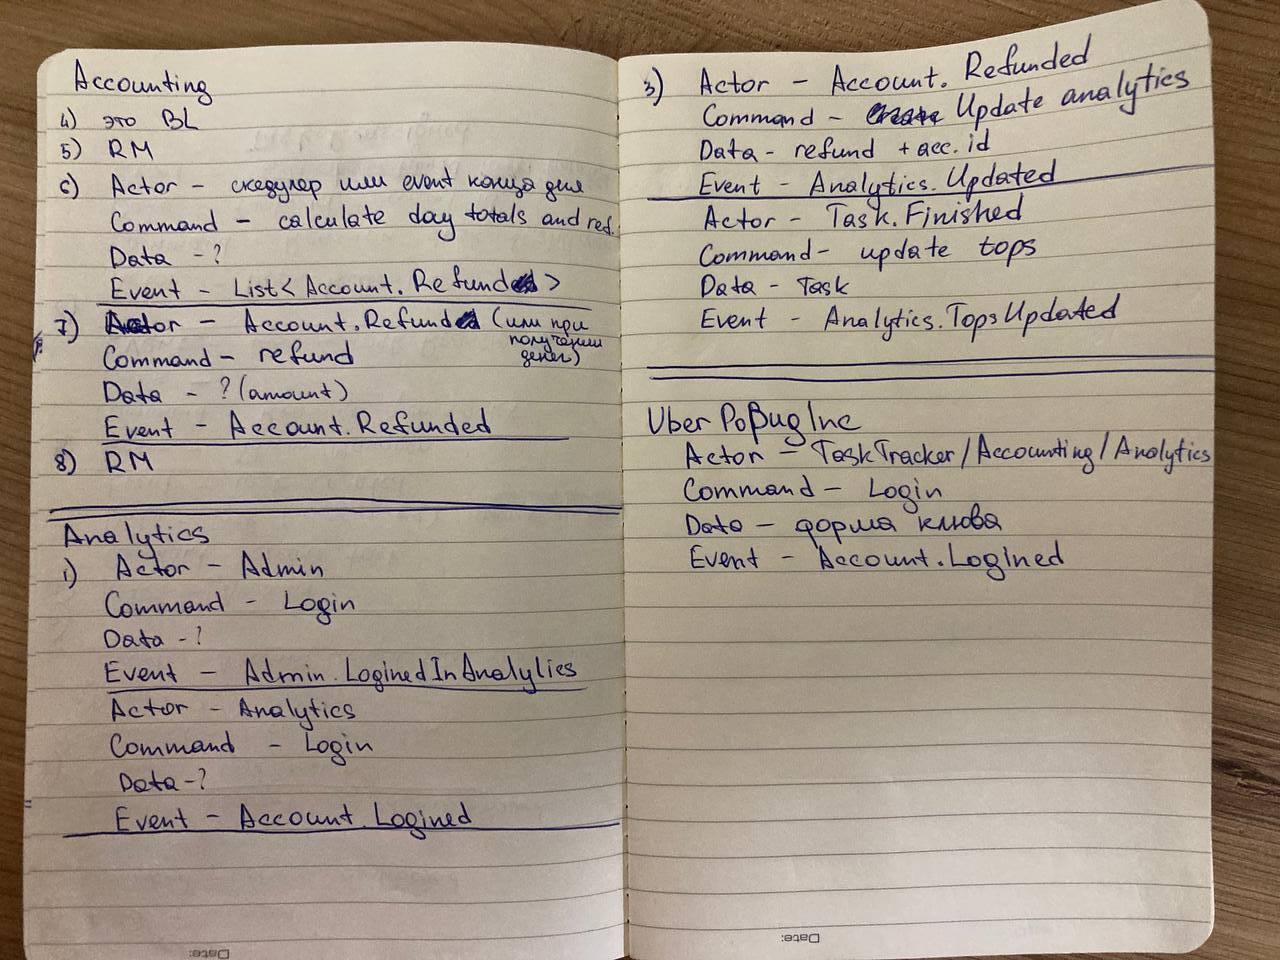 Accounting
4) это BL
5) RM
6) Actor - скедулер или event конца дня
Command - calculate day totals and ref.
Data - ?
Event - List< Account. Refunded >
7) Actor - Account.Refunded (или при
получении
денег)
Command - refund
Data - ? (amount)
Event - Account.Refunded
8) RM
Analytics
1) Actor - Admin
Command - Login
Data - ?
Event - Admin.LoginedInAnalytics
Actor - Analytics
Command - Login
Data - ?
Event - Account.Logined
Date:
3) Actor - Account.Refunded
Command - Update analytics
Data - refund + acc. id
Event - Analytics.Updated
Actor - Task.Finished
Command - update tops
Data - Task
Event - Analytics.TopsUpdated
Uber PoBug Inc
Actor - TaskTracker/Accounting/Analytics
Command - Login
Data - форма клюва
Event - Account.LogIned
Date: